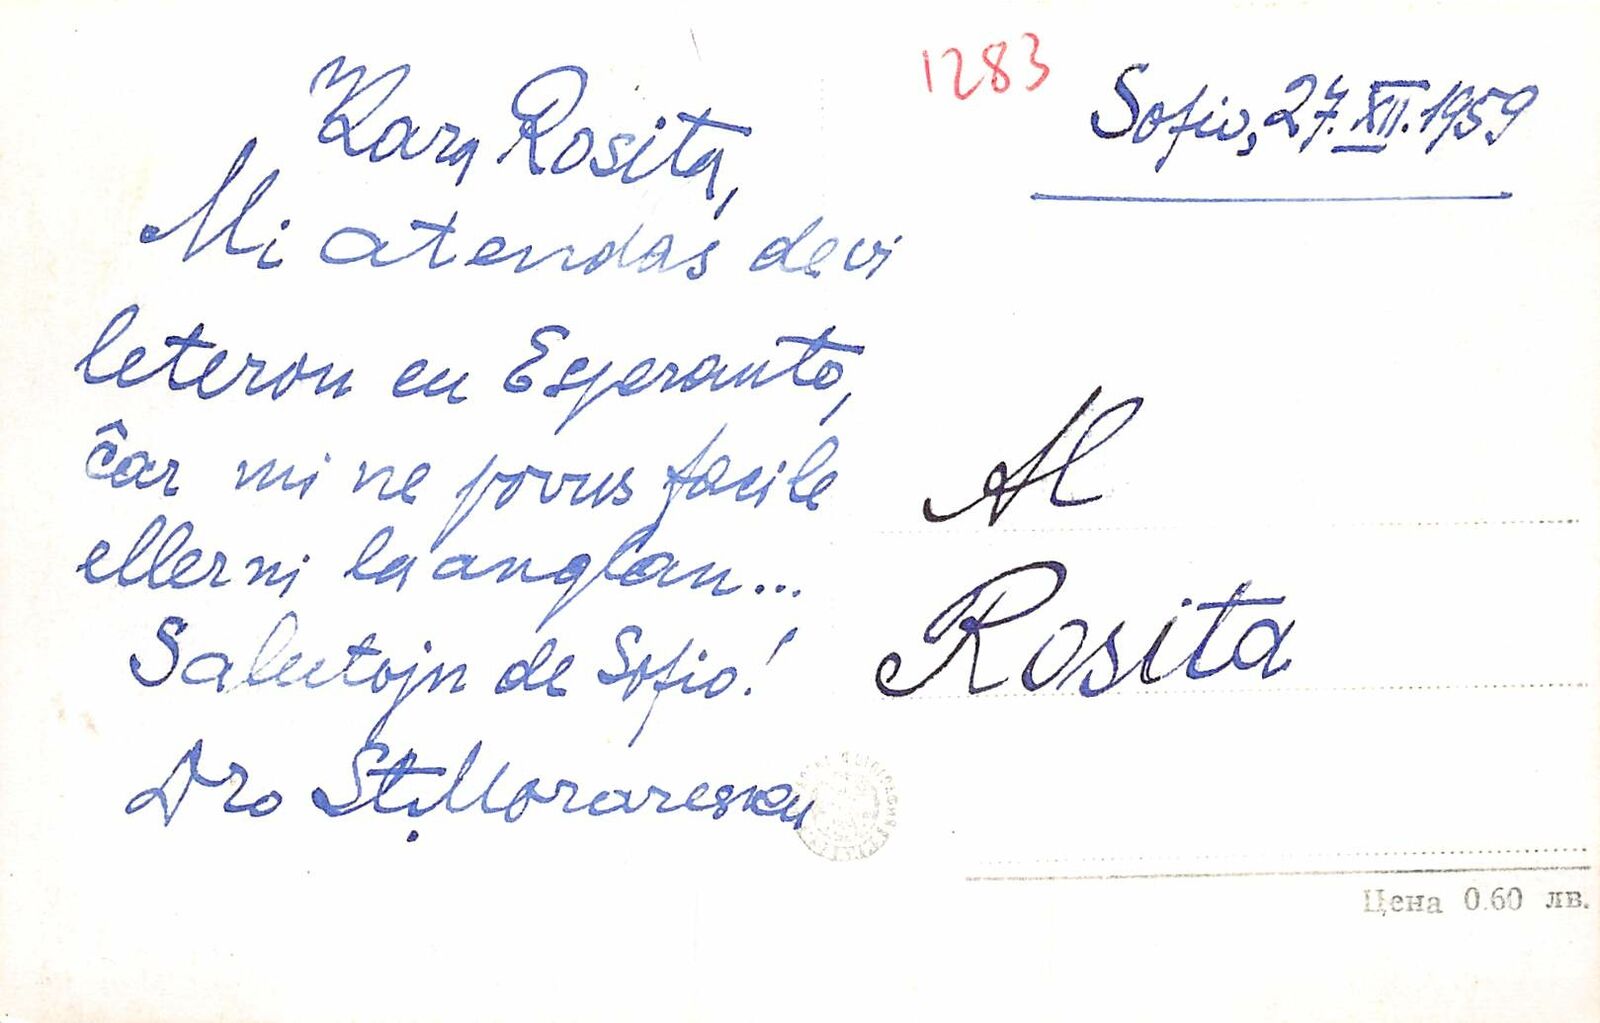 1283
Sofio, 27.XII.1959
Kara Rosita,
Mi atendas de vi
leteron en Esperanto,
ĉar mi ne povus facile
ellerni la anglan...
Salutojn de Sofio!
Dro St. Morarescu
Al
Rosita
Цена 0.60 лв.